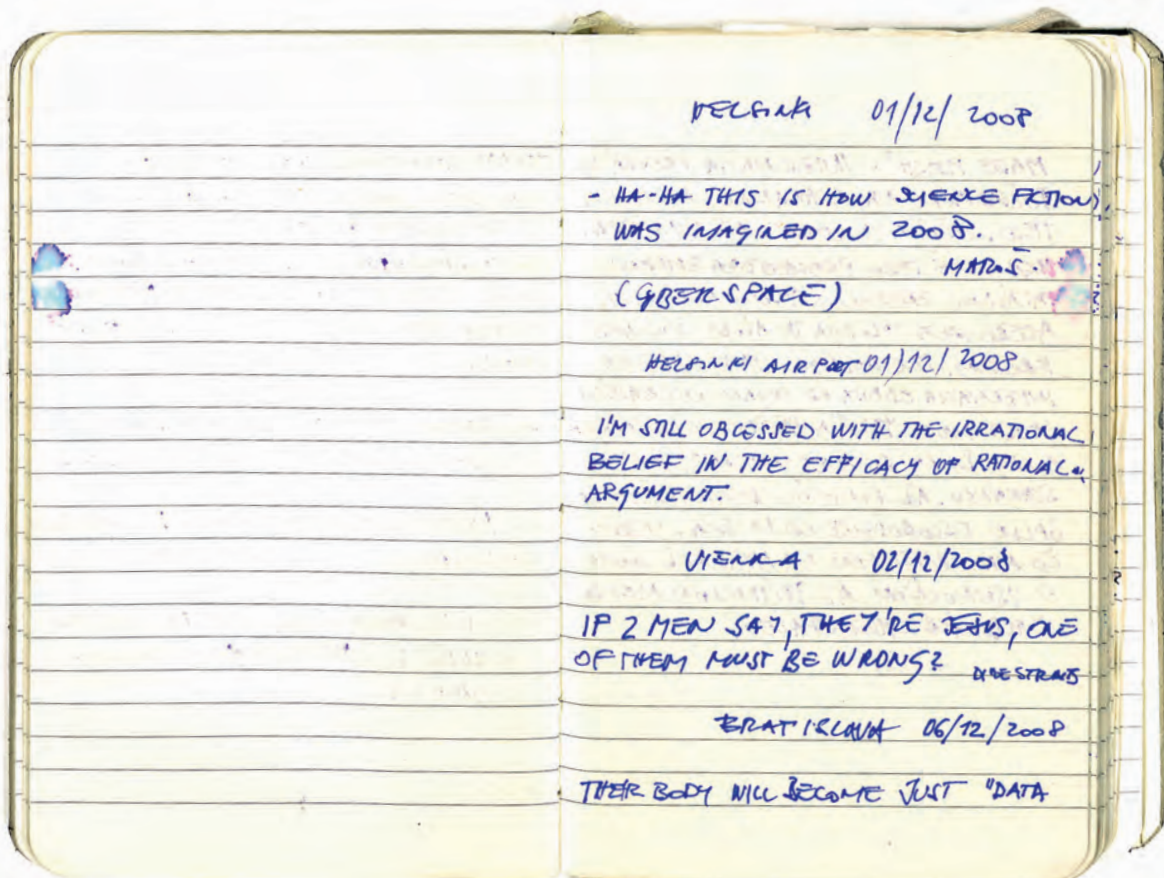 HELSINKI 01/12/2008
- HA-HA THIS IS HOW SCIENCE FICTION
WAS IMAGINED IN 2008.
MAROŠ.
(CYBERSPACE)
HELSINKI AIRPORT 01/12/2008
I'M STILL OBCESSED WITH THE IRRATIONAL
BELIEF IN THE EFFICACY OF RATIONAL
ARGUMENT.
VIENNA 02/12/2008
IF 2 MEN SAY, THEY'RE JESUS, ONE
OF THEM MUST BE WRONG?
DIRE STRAITS
BRATISLAVA 06/12/2008
THEIR BODY WILL BECOME JUST "DATA